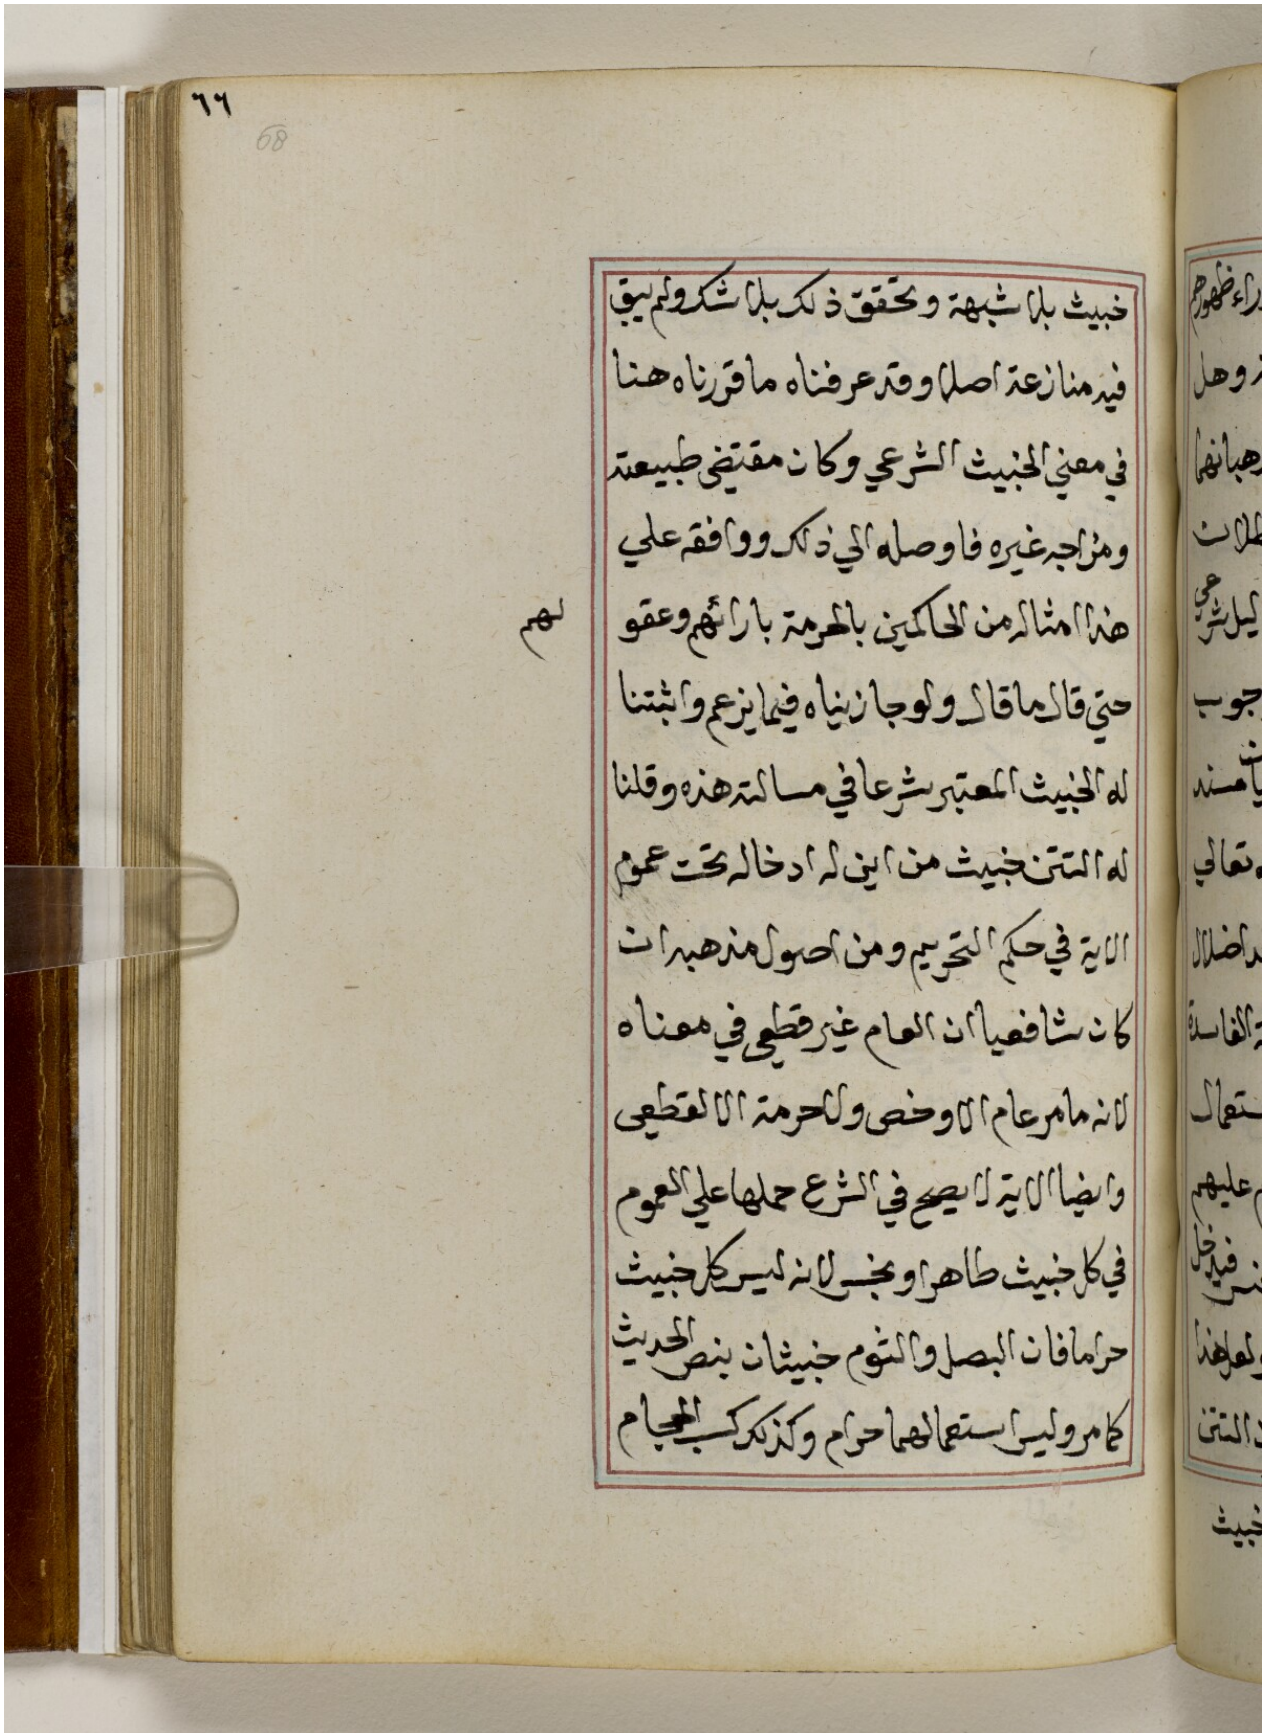 ٦٦
68
خبيث بلا شبهة وتحقق ذلك بلا شك ولم يبق
فيه منازعة اصلا وقد عرفناه ما قررناه هنا
في معني الخبيث الشرعي وكان مقتضى طبيعته
ومزاجه غيره فاوصله الي ذلك ووافقه علي
هذا امثاله من الحاكمين بالحرمة بارائهم وعقو
لهم
حتي قال ما قال ولو جازيناه فيما يزعم واثبتنا
له الخبيث المعتبر شرعا في مسالته هذه وقلنا
له التتن خبيث من اين له ادخاله تحت عموم
الاية في حكم التحريم ومن اصول مذهبه ان
كان شافعيا ان العام غير قطعي في معناه
لانه ما مر عام الا وخص ولا حرمة الا لقطعي
وايضا الاية لا يصح في الشرع حملها علي العموم
في كل خبيث طاهر او نجس لانه ليس كل خبيث
حراما فان البصل والثوم خبيثان بنص الحديث
كما مر وليس استعمالهما حرام وكذلك كسب الحجام
راء ظهورهم
وهل
رهبانهما
ليل شرعي
جوب
مسند
تعالي
اضلال
الفاسدة
ستعمال
عليهم
فيدخل
ولعل هذا
التتن
خبيث